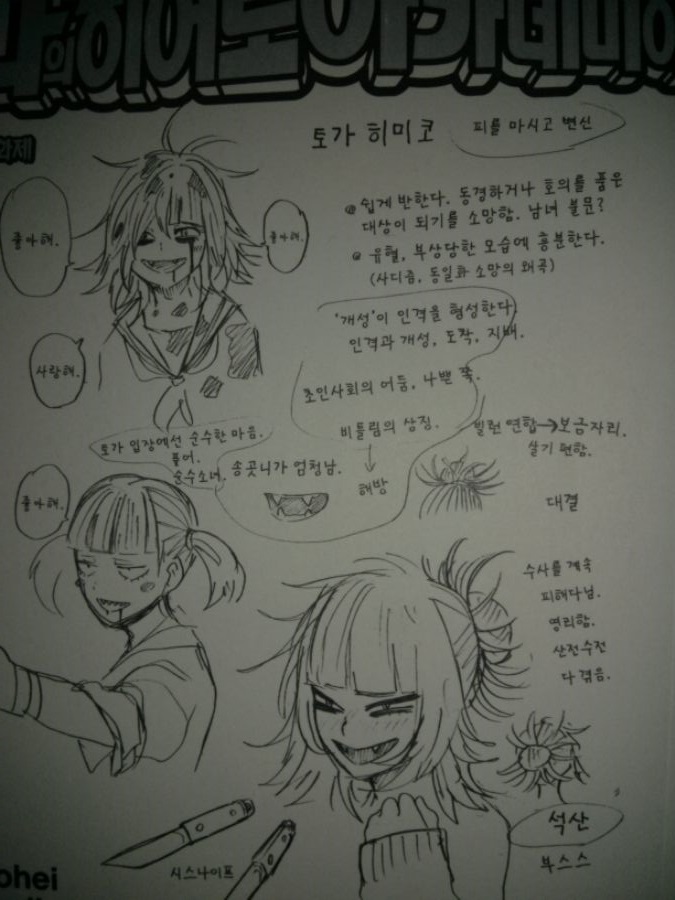 나의 히어로 아카데미아
화제
토가 히미코
피를 마시고 변신
쉽게 반한다. 동경하거나 호의를 품은
대상이 되기를 소망함. 남녀 불문?
유혈, 부상당한 모습에 흥분한다.
(사디즘, 동일화 소망의 왜곡)
좋아해.
좋아해.
사랑해.
'개성'이 인격을 형성한다.
인격과 개성, 도착, 지배.
초인사회의 어둠, 나쁜 쪽.
비틀림의 상징.
해방
빌런 연합→보금자리.
살기 편함.
토가 입장에선 순수한 마음.
순수소녀.
송곳니가 엄청남.
좋아해.
대결
수사를 계속
피해다님.
영리함.
산전수전
다 겪음.
석산
부스스
시스나이프
ohei